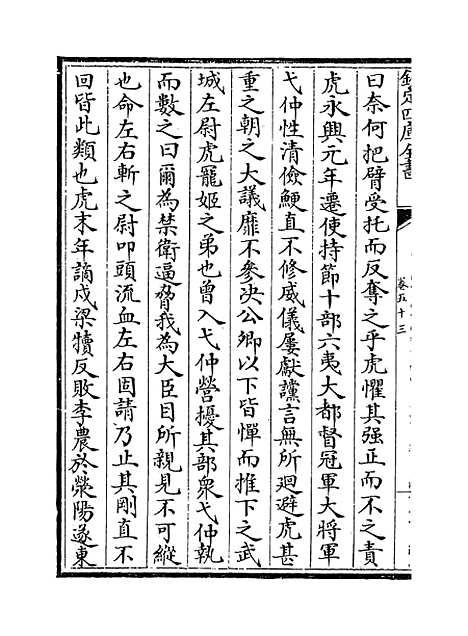 欽定四庫全書
卷五十三
曰奈何把臂受托而反奪之乎虎懼其强正而不之責
虎永興元年遷使持節十部六夷大都督冠軍大將軍
弋仲性清儉鯁直不修威儀屢獻讜言無所廻避虎甚
重之朝之大議靡不參决公卿以下皆憚而推下之武
城左尉虎寵姬之弟也曾入弋仲營擾其部衆弋仲執
而數之曰爾為禁衛逼脅我為大臣目所親見不可縱
也命左右斬之尉叩頭流血左右固請乃止其剛直不
回皆此類也虎末年謫戍梁犢反敗李農於滎陽遂東